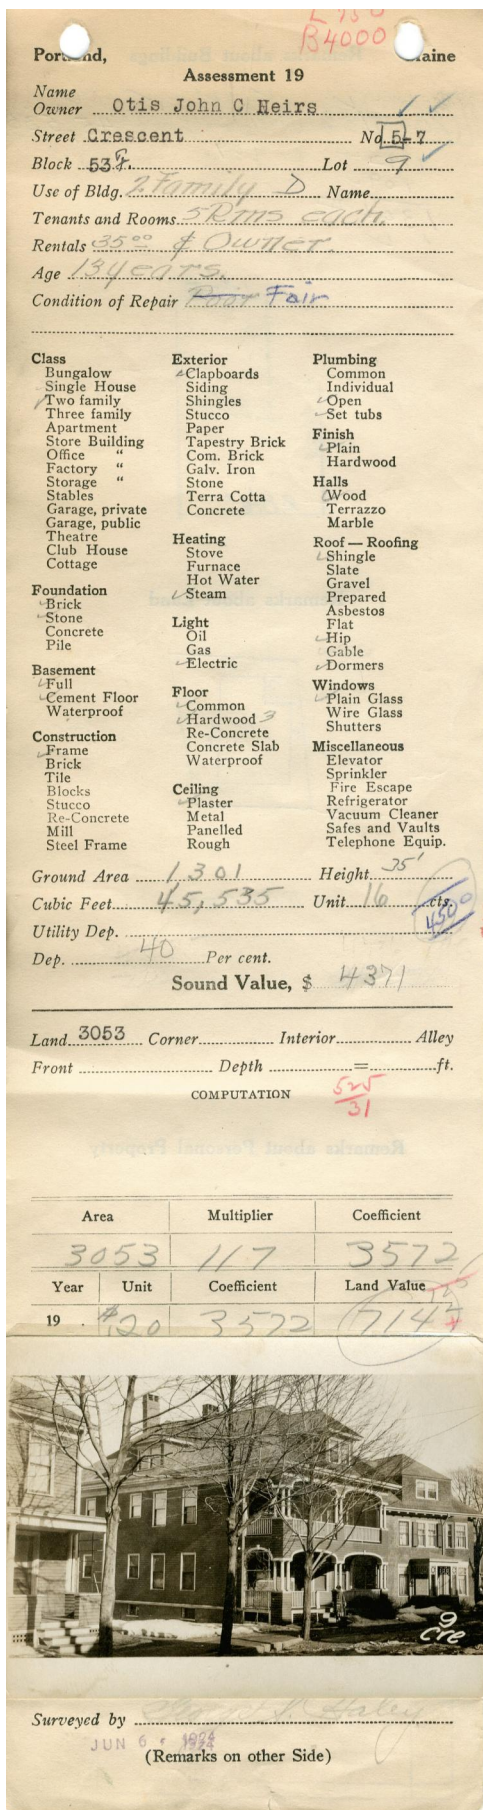 L 750
B4000
Portland, Maine
Assessment 19
Name
Owner Otis John C Heirs
Street Crescent No. 5-7
Block 53 Lot 9
Use of Bldg. 2 Family D Name
Tenants and Rooms 5 Rms each.
Rentals 35 00 & Owner.
Age 13 years.
Condition of Repair Poor Fair
Class
Bungalow
Single House
Two family
Three family
Apartment
Store Building
Office "
Factory "
Storage "
Stables
Garage, private
Garage, public
Theatre
Club House
Cottage
Foundation
Brick
Stone
Concrete
Pile
Basement
Full
Cement Floor
Waterproof
Construction
Frame
Brick
Tile
Blocks
Stucco
Re-Concrete
Mill
Steel Frame
Exterior
Clapboards
Siding
Shingles
Stucco
Paper
Tapestry Brick
Com. Brick
Galv. Iron
Stone
Terra Cotta
Concrete
Heating
Stove
Furnace
Hot Water
Steam
Light
Oil
Gas
Electric
Floor
Common
Hardwood 3
Re-Concrete
Concrete Slab
Waterproof
Ceiling
Plaster
Metal
Panelled
Rough
Plumbing
Common
Individual
Open
Set tubs
Finish
Plain
Hardwood
Halls
Wood
Terrazzo
Marble
Roof — Roofing
Shingle
Slate
Gravel
Prepared
Asbestos
Flat
Hip
Gable
Dormers
Windows
Plain Glass
Wire Glass
Shutters
Miscellaneous
Elevator
Sprinkler
Fire Escape
Refrigerator
Vacuum Cleaner
Safes and Vaults
Telephone Equip.
Ground Area 1301 Height 35'
Cubic Feet 45,535 Unit 16 cts.
4500
Utility Dep.
Dep. 40 Per cent.
Sound Value, $ 4371
Land 3053 Corner Interior Alley
Front Depth = ft.
COMPUTATION
525
31
Area Multiplier Coefficient
3053 117 3572
Year Unit Coefficient Land Value
19 . $.20 3572 714
9
Cre
Surveyed by
JUN 6 1924
(Remarks on other Side)